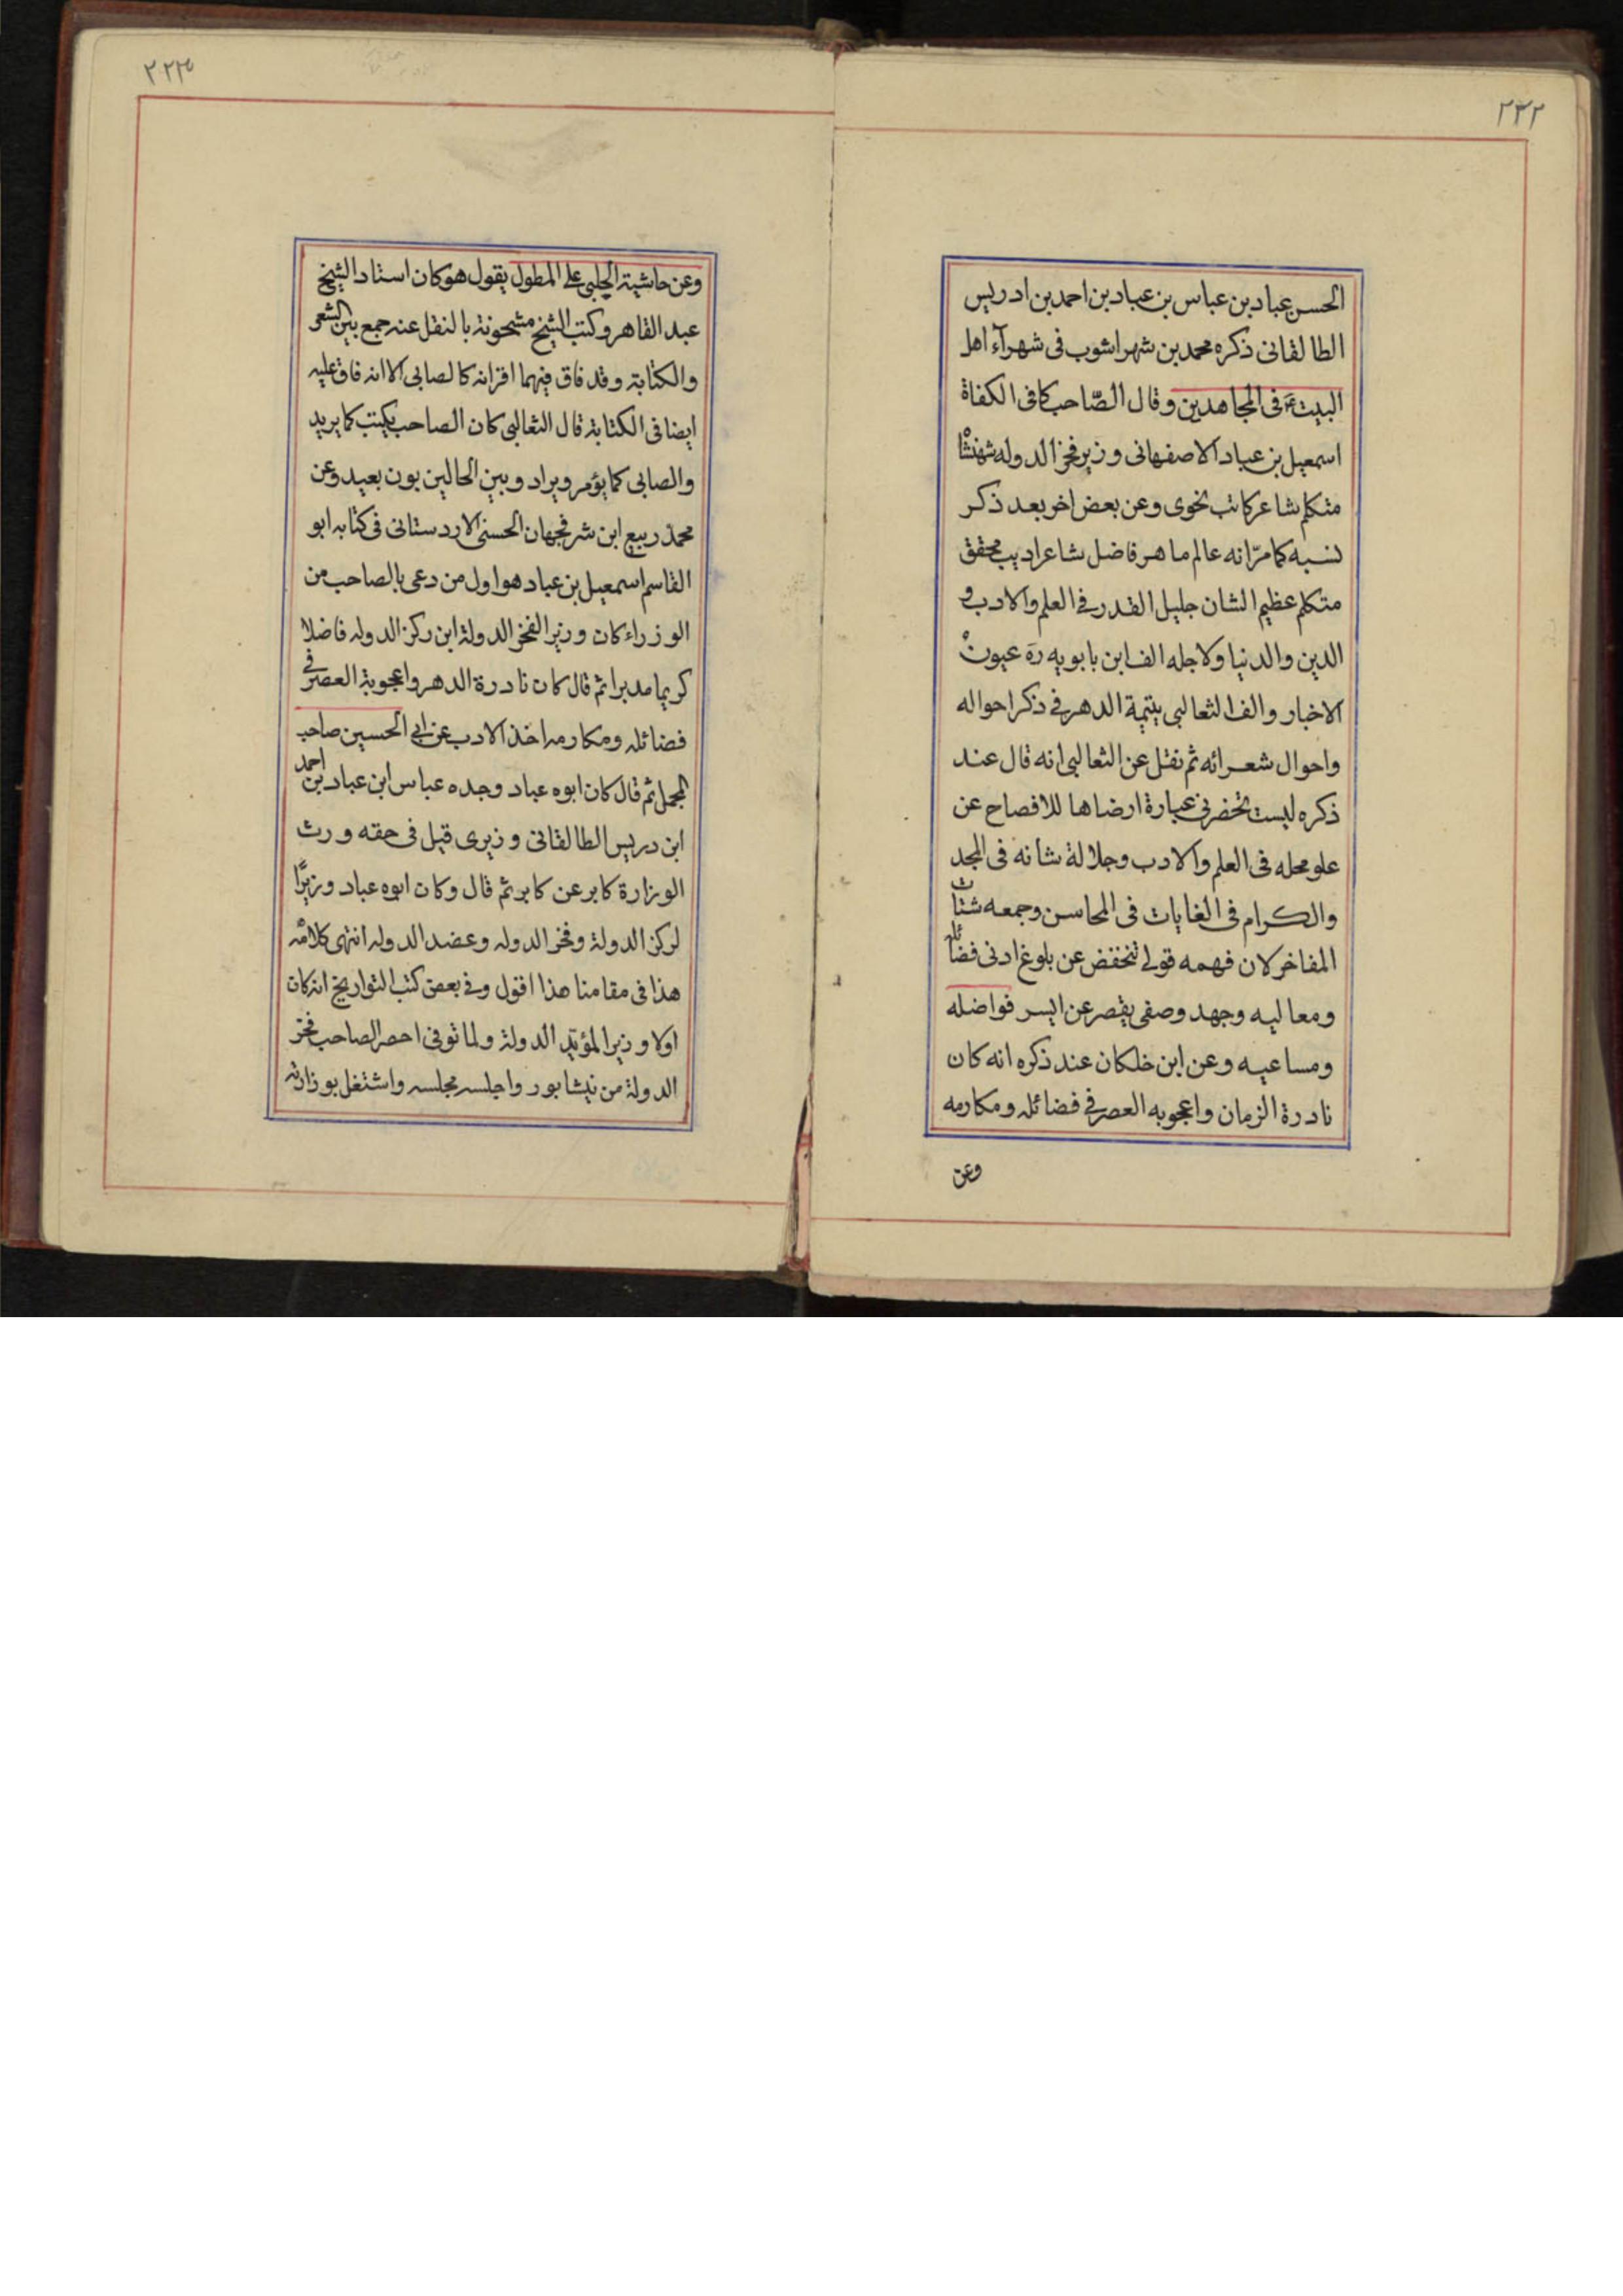 ٢٣٢
الحسن عباد بن عباس بن عباد بن احمد بن ادريس
الطالقانى ذكره محمد بن شهراشوب فى شهرآء اهل
البيت ع فى المجاهدين وقال الصّاحب كافى الكفاة
اسمعيل بن عباد الاصفهانى وزير فخر الدوله شهنشا
متكلم شاعر كاتب نحوى وعن بعض اخر بعد ذكر
نسبه كما مرّ انه عالم ماهر فاضل شاعر اديب محقق
متكلم عظيم الشان جليل القدر فى العلم والادب و
الدين والدنيا ولاجله الف ابن بابويه ره عيون
الاخبار والف الثعالبى يتيمة الدهر فى ذكر احواله
واحوال شعرائه ثم نقل عن الثعالبى انه قال عند
ذكره ليست تحضرنى عبارة ارضاها للافصاح عن
علو محله فى العلم والادب وجلالة شانه فى المجد
والكرام فى الغايات فى المحاسن وجمعه شتات
المفاخر لان فهمه قولى تنخفض عن بلوغ ادنى فضائله
ومعاليه وجهد وصفى يقصر عن ايسر فواضله
ومساعيه وعن ابن خلكان عند ذكره انه كان
نادرة الزمان واعجوبه العصر فى فضائله ومكارمه
وعن
٢٢٣
وعن حاشية الچلبى على المطول يقول هو كان استاد الشيخ
عبد القاهر وكتب الشيخ مشحونة بالنقل عنه جمع بين الشعر
والكتابة وقد فاق فيهما اقرانه كالصابى الا انه فاق عليه
ايضا فى الكتابة قال الثعالبى كان الصاحب يكتب كما يريد
والصابى كما يؤمر ويراد وبين الحالين بون بعيد وعن
محمد ربيع ابن شرفجهان الحسنى الاردستانى فى كتابه ابو
القاسم اسمعيل بن عباد هو اول من دعى بالصاحب من
الوزراء كان وزير الفخر الدولة ابن ركن الدوله فاضلا
كريما مدبرا ثم قال كان نادرة الدهر واعجوبة العصر فى
فضائله ومكارمه اخذ الادب عن ابى الحسين صاحب
المجمل ثم قال كان ابوه عباد وجده عباس ابن عباد بن احمد
ابن دريس الطالقانى وزيرى قيل فى حقه ورث
الوزارة كابر عن كابر ثم قال وكان ابوه عباد وزيرًا
لركن الدولة وفخر الدوله وعضد الدوله انتهى كلامه
هذا فى مقامنا هذا اقول وفى بعض كتب التواريخ انه كان
اولا وزير المؤيد الدولة ولما توفى احصر الصاحب فخر
الدولة من نيشابور واجلسه مجلسه واشتغل بوزارته